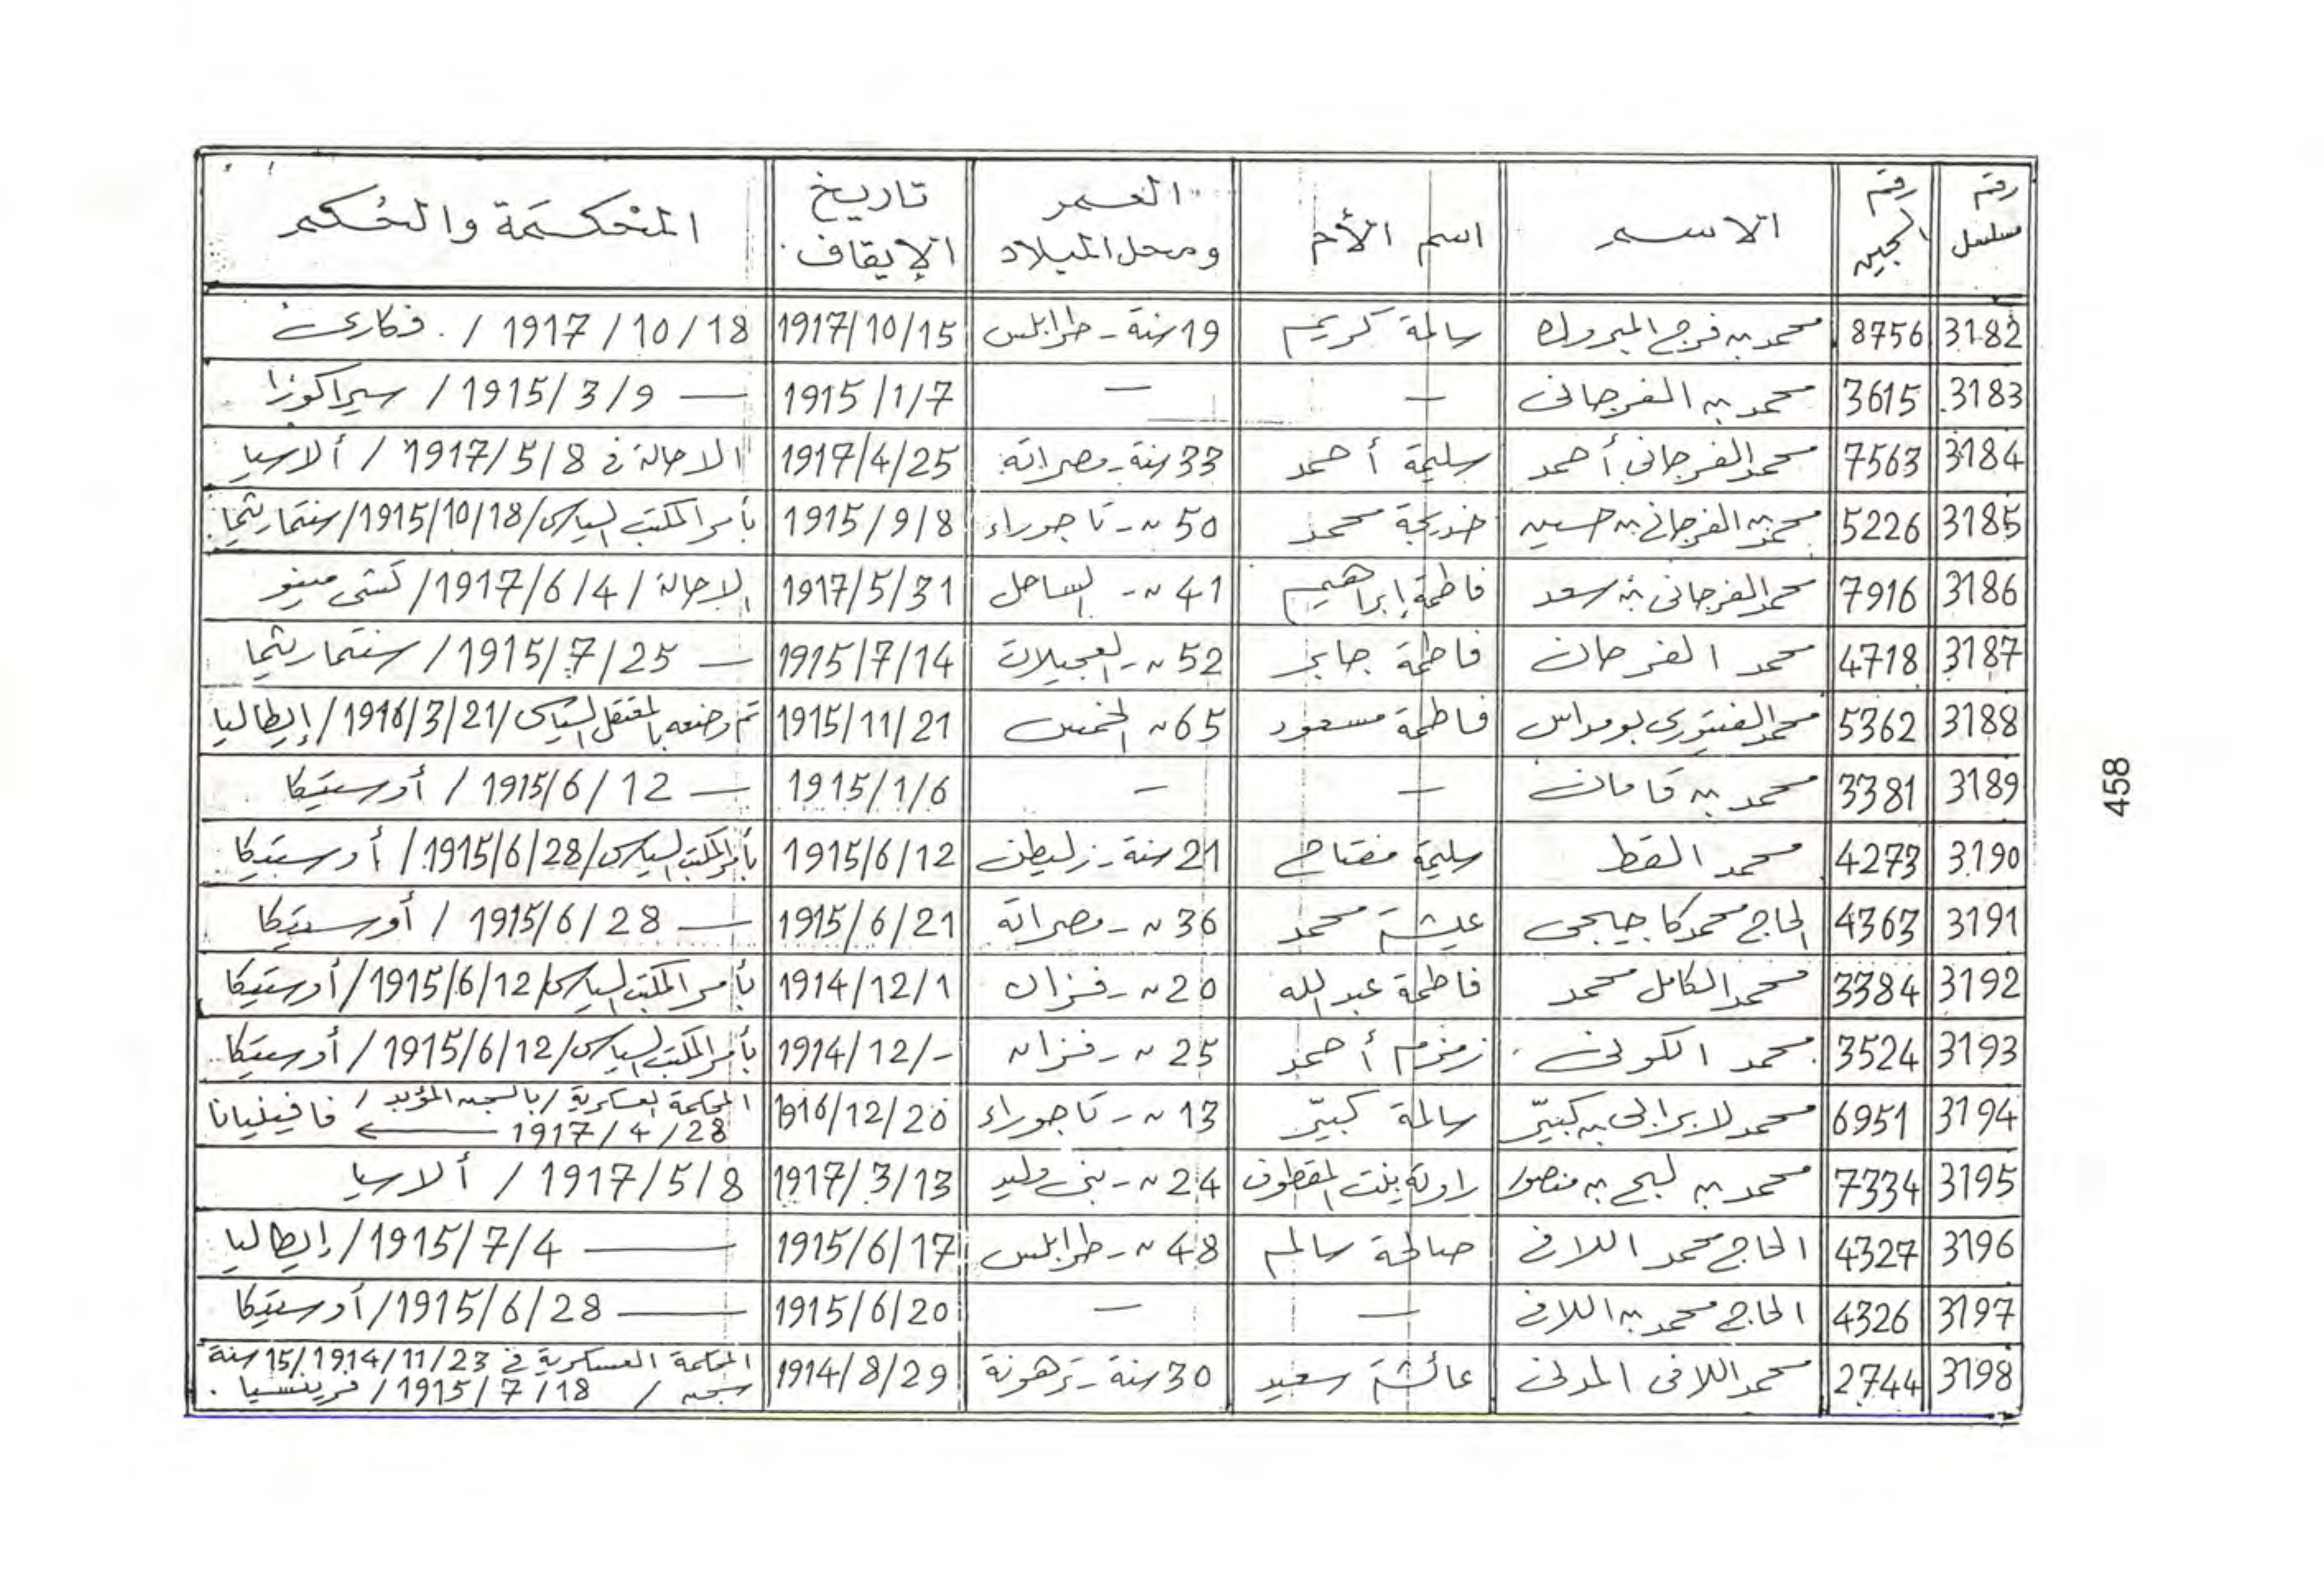 رقم مسلسل | رقم السجين | الاسم | اسم الأم | العمر ومحل الميلاد | تاريخ الإيقاف | المحكمة والحكم
3182 | 8756 | محمد بن فرج المبروك | سالمة كريم | 19 سنة - طرابلس | 1917/10/15 | 1917/10/18 /
3183 | 3615 | محمد بن الفرجاني | — | — | 1915/1/7 | — 1915/3/9 / سيراكوزا
3184 | 7563 | محمد الفرجاني أحمد | سليمة أحمد | 33 سنة - مصراتة | 1917/4/25 | الاحالة في 1917/5/8 / ألاسيا
3185 | 5226 | محمد بن الفرجاني بن حسين | خديجة محمد | 50 ~ - تاجوراء | 1915/9/8 | بأمر المكتب السياسي / 1915/10/18 /
3186 | 7916 | محمد الفرجاني بن سعد | فاطمة إبراهيم | 41 ~ - الساحل | 1917/5/31 | الاحالة / 1917/6/4 /
3187 | 4718 | محمد الفرجان | فاطمة جابر | 52 ~ - العجيلات | 1915/7/14 | — 1915/7/25 /
3188 | 5362 | محمد الفيتوري بومداس | فاطمة مسعود | 65 ~ الخمس | 1915/11/21 | تم وضعه بالمعتقل السياسي / 1916/3/21 / إيطاليا
3189 | 3381 | محمد بن قامان | — | — | 1915/1/6 | — 1915/6/12 / أوستيكا
3190 | 4273 | محمد القط | سليمة مفتاح | 21 سنة - زليطن | 1915/6/12 | بأمر المكتب السياسي / 1915/6/28 / أوستيكا
3191 | 4363 | الحاج محمد كاجيجي | عيشة محمد | 36 ~ - مصراتة | 1915/6/21 | — 1915/6/28 / أوستيكا
3192 | 3384 | محمد الكامل محمد | فاطمة عبد الله | 20 ~ - فزان | 1914/12/1 | بأمر المكتب السياسي / 1915/6/12 / أوستيكا
3193 | 3524 | محمد الكوني | زمزم أحمد | 25 ~ - فزان | 1914/12/- | بأمر المكتب السياسي / 1915/6/12 / أوستيكا
3194 | 6951 | محمد لابرالي بن كبيّر | سالمة كبيّر | 13 ~ - تاجوراء | 1916/12/20 | المحكمة العسكرية / بالسجن المؤبد / 1917/4/28 ← فافينيانا
3195 | 7334 | محمد بن لبج بن منصور | بنت المقطوف | 24 ~ - بني وليد | 1917/3/13 | 1917/5/8 / ألاسيا
3196 | 4327 | الحاج محمد اللافي | صالحة سالم | 48 ~ - طرابلس | 1915/6/17 | — 1915/7/4 / إيطاليا
3197 | 4326 | الحاج محمد بن اللافي | — | — | 1915/6/20 | — 1915/6/28 / أوستيكا
3198 | 2744 | محمد اللافي المدني | عائشة سعيد | 30 سنة - ترهونة | 1914/8/29 | المحكمة العسكرية في 1914/11/23 / 15 سنة سجن / 1915/7/18 /
458